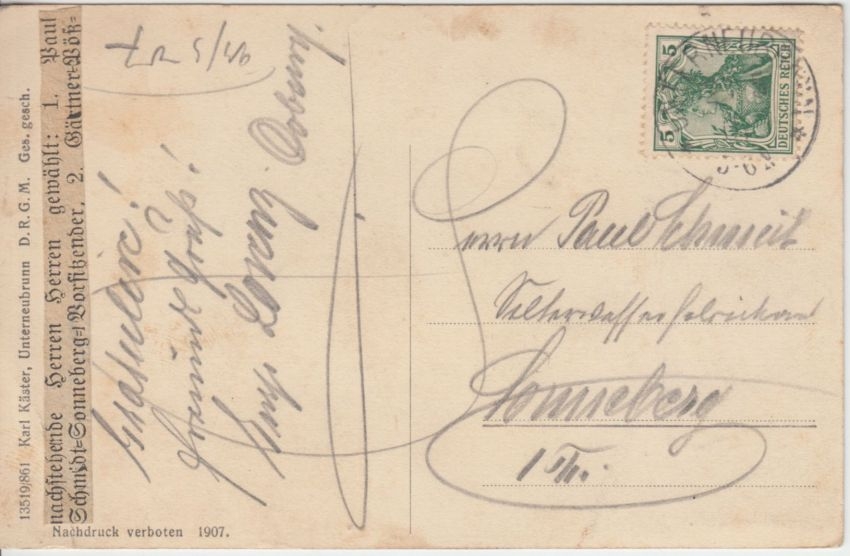 Gratuliere!
Freundl. Gruß!
Lorenz Coburg.
Herrn Paul Schmidt
Selterwasserfabrikant
Sonneberg
i Th.
DEUTSCHES REICH
5 5
nachstehende Herren Herren gewählt: 1. Paul
Schmidt-Sonneberg-1 Vorsitzender, 2. Gärtner-Röß-
13519/861 Karl Käster, Unterneubrunn D. R. G. M. Ges. gesch.
Nachdruck verboten 1907.